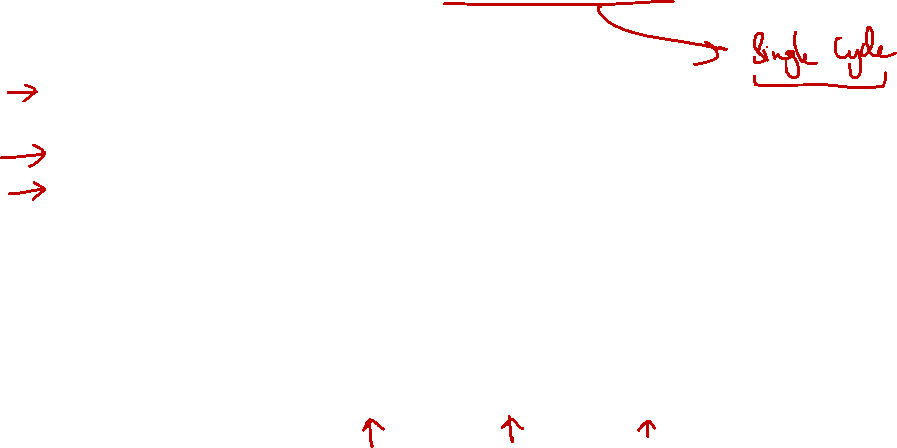 Single Cycle